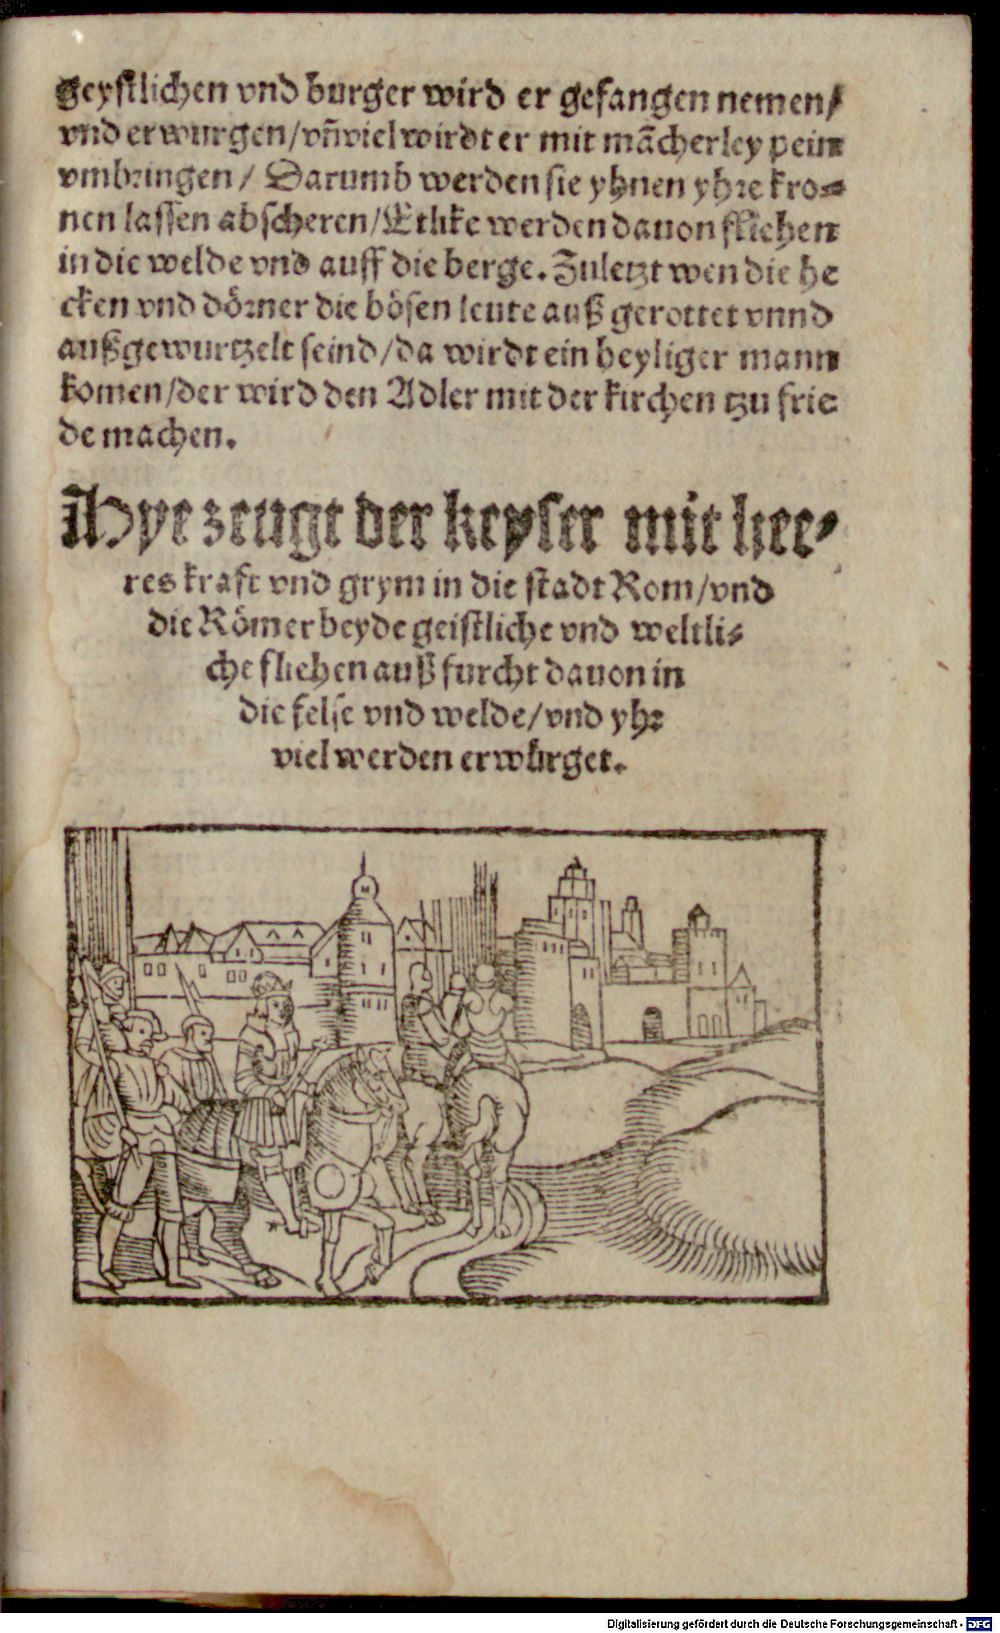 geystlichen vnd burger wird er gefangen nemen/
vnd erwurgen/vn̄ viel wirdt er mit mācherley pein
vmbringen/ Darumb werden sie yhnen yhre kro⸗
nen lassen abscheren/Etlike werden dauon fliehen
in die welde vnd auff die berge. Zuletzt wen die he
cken vnd dörner die bösen leute auß gerottet vnnd
außgewurtzelt seind/da wirdt ein heyliger mann
komen/der wird den Adler mit der kirchen tzu frie
de machen.
Hye zeugt der keyser mit hee⸗
res kraft vnd grym in die stadt Rom/vnd
die Römer beyde geistliche vnd weltli⸗
che fliehen auß furcht dauon in
die felse vnd welde/vnd yhr
viel werden erwůrget.
Digitalisierung gefördert durch die Deutsche Forschungsgemeinschaft - DFG